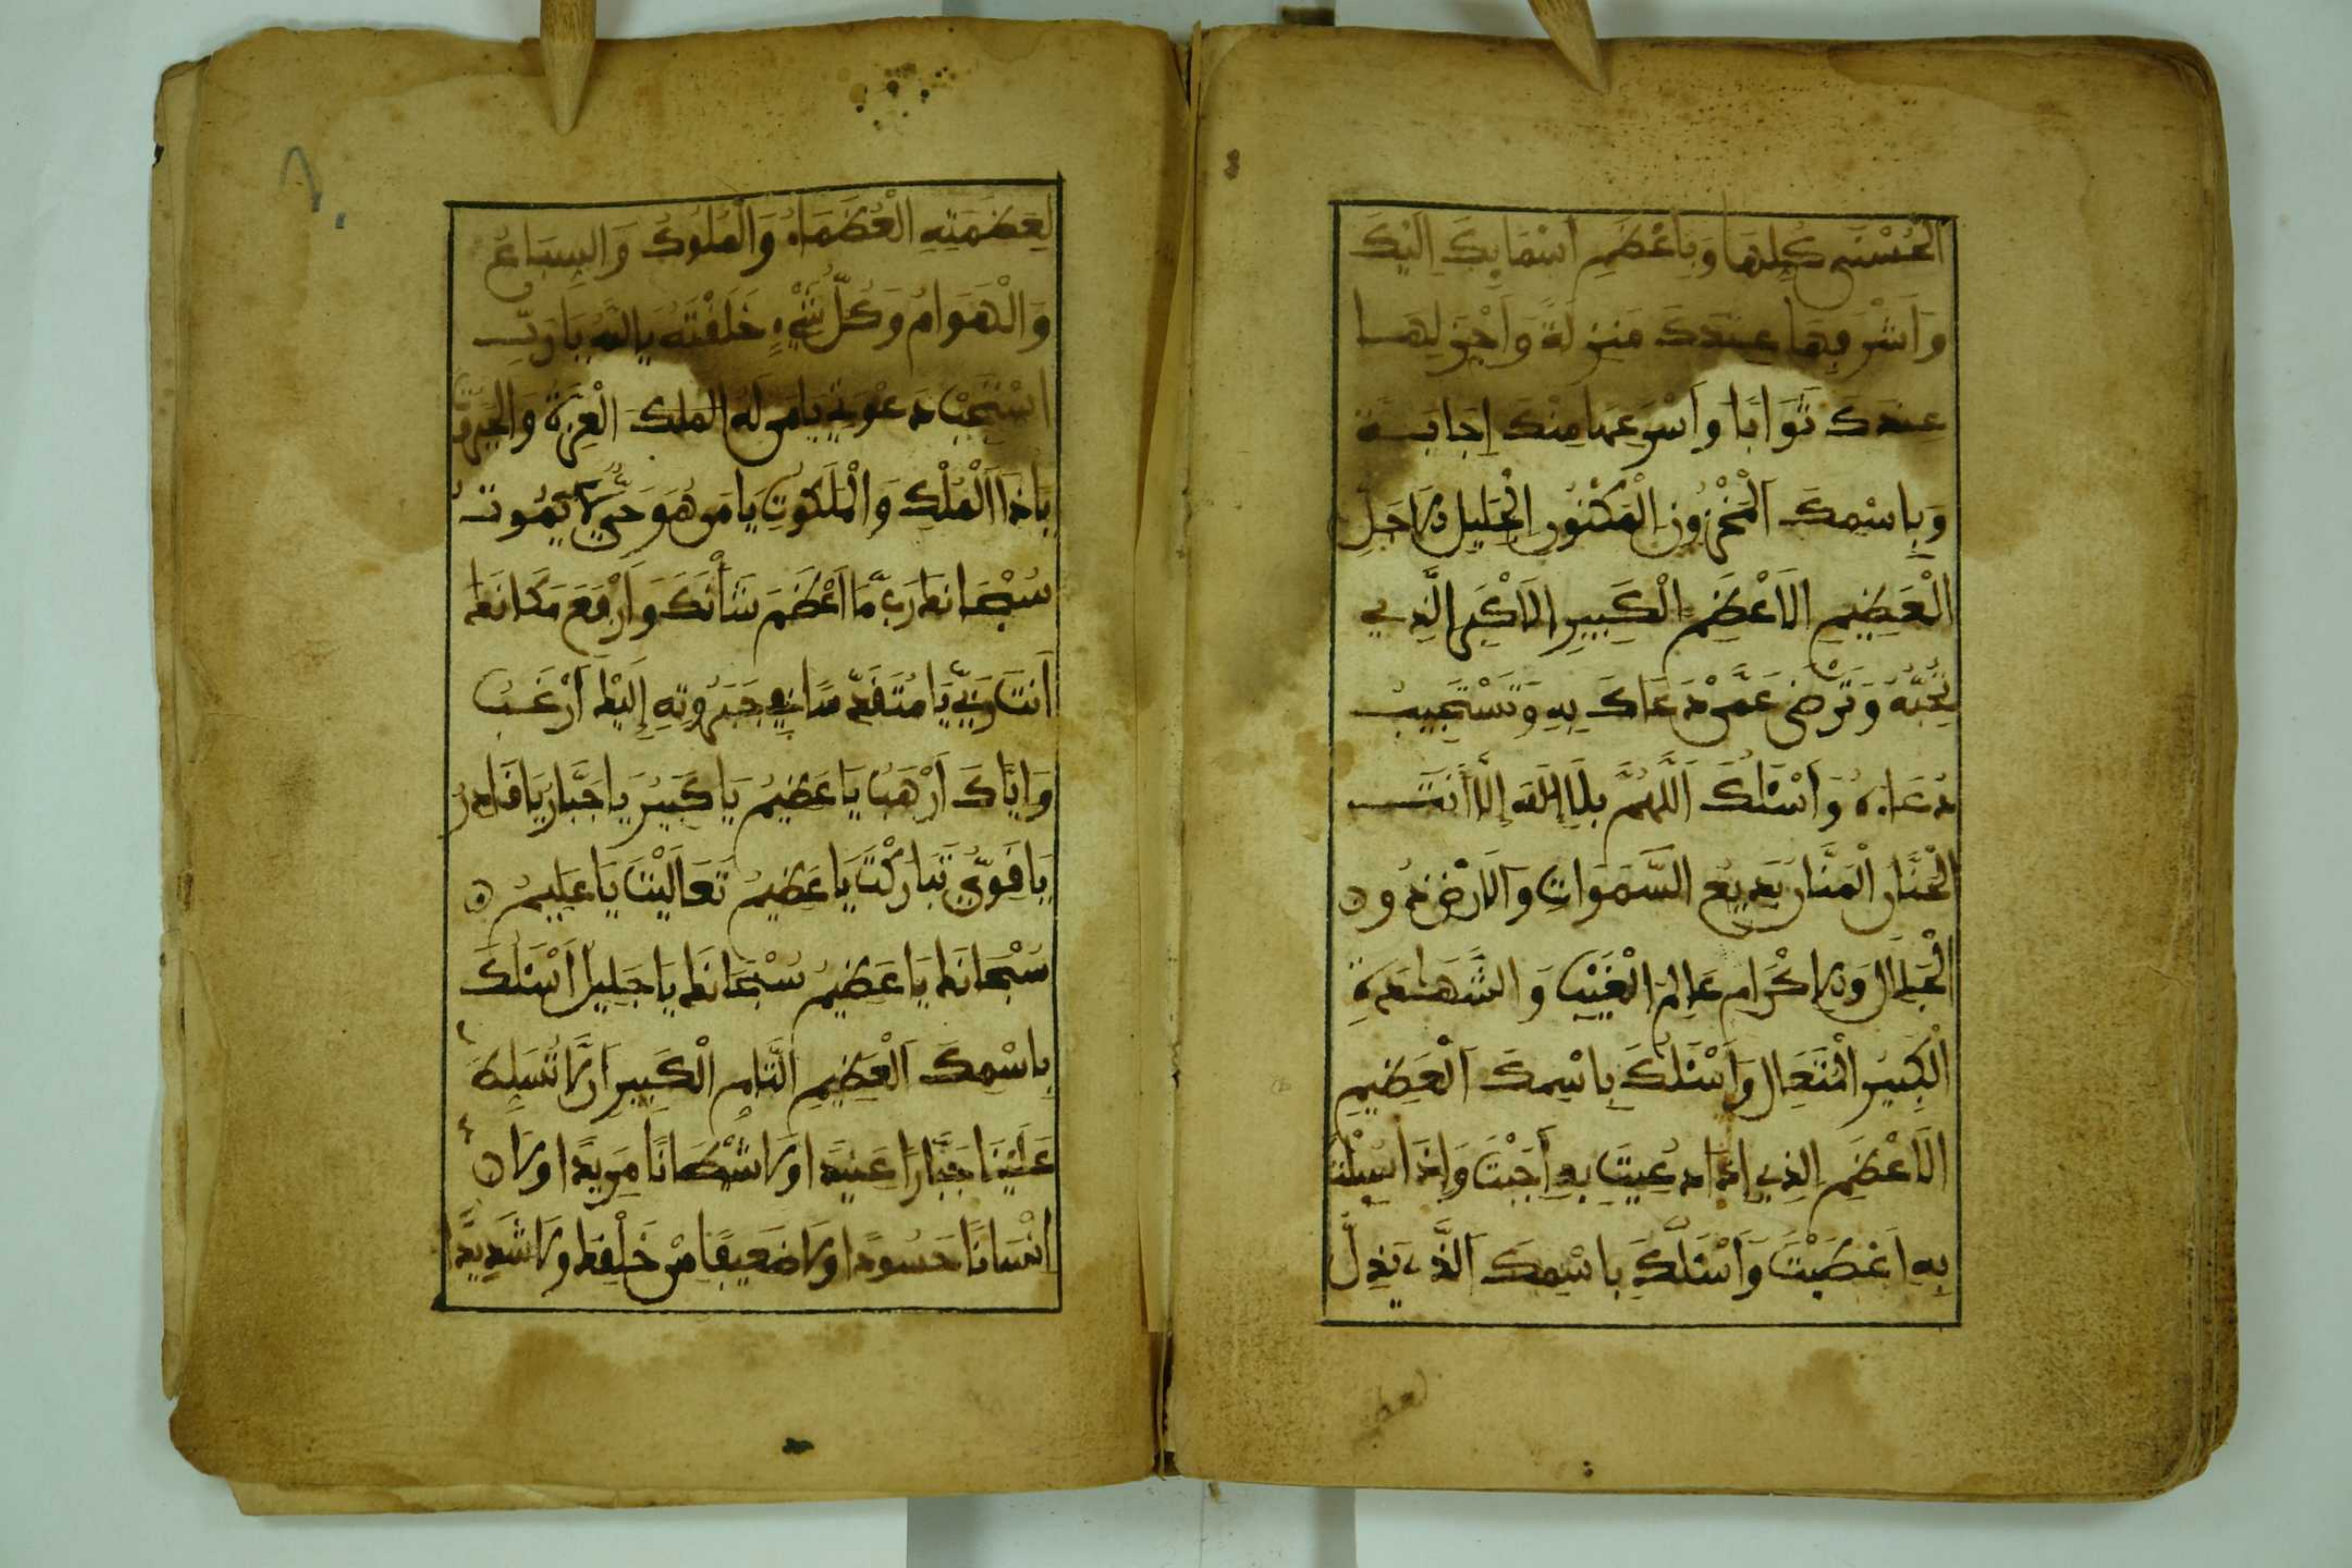 الْحُسْنَى كُلِّهَا وَبِأَعْظَمِ أَسْمَائِكَ إِلَيْكَ
وَأَشْرَفِهَا عِنْدَكَ مَنْزِلَةً وَأَجْزَلِهَا
عِنْدَكَ ثَوَابًا وَأَسْرَعِهَا مِنْكَ إِجَابَةً
وَبِاسْمِكَ الْمَخْزُونِ الْمَكْنُونِ الْجَلِيلِ الأَجَلِّ
الْعَظِيمِ الأَعْظَمِ الْكَبِيرِ الأَكْبَرِ الَّذِي
تُحِبُّهُ وَتَرْضَى عَمَّنْ دَعَاكَ بِهِ وَتَسْتَجِيبُ
دُعَاءَهُ وَأَسْئَلُكَ اللَّهُمَّ بِلَا إِلَهَ إِلَّا أَنْتَ
الْحَنَّانُ الْمَنَّانُ بَدِيعُ السَّمَوَاتِ وَالأَرْضِ ذُو
الْجَلَالِ وَالإِكْرَامِ عَالِمُ الْغَيْبِ وَالشَّهَادَةِ
الْكَبِيرُ الْمُتَعَالِ وَأَسْئَلُكَ بِاسْمِكَ الْعَظِيمِ
الأَعْظَمِ الَّذِي إِذَا دُعِيتَ بِهِ أَجَبْتَ وَإِذَا سُئِلْتَ
بِهِ أَعْطَيْتَ وَأَسْئَلُكَ بِاسْمِكَ الَّذِي يَذِلُّ
لعظمـ
لِعَظَمَتِهِ الْعُظَمَاءُ وَالْمُلُوكُ وَالسِّبَاعُ
وَالْهَوَامُ وَكُلُّ شَيْءٍ خَلَقْتَهُ يَا اللَّهُ يَا رَبِّ
اسْتَجِبْ دَعْوَتِي يَا مَنْ لَهُ الْمُلْكُ الْعِزَّةُ وَالْجَبَرُوتُ
يَا ذَا الْمُلْكِ وَالْمَلَكُوتِ يَا مَنْ هُوَ حَيٌّ لَا يَمُوتُ
سُبْحَانَكَ رَبِّ مَا أَعْظَمَ شَأْنَكَ وَأَرْفَعَ مَكَانَكَ
أَنْتَ رَبِّي يَا مُتَقَدِّسًا فِي جَبَرُوتِهِ إِلَيْكَ أَرْغَبُ
وَإِيَّاكَ أَرْهَبُ يَا عَظِيمُ يَا كَبِيرُ يَا جَبَّارُ يَا قَادِرُ
يَا قَوِيُّ تَبَارَكْتَ يَا عَظِيمُ تَعَالَيْتَ يَا عَلِيمُ
سُبْحَانَكَ يَا عَظِيمُ سُبْحَانَكَ يَا جَلِيلُ أَسْئَلُكَ
بِاسْمِكَ الْعَظِيمِ التَّامِ الْكَبِيرِ أَنْ لَا تُسَلِّطَ
عَلَيْنَا جَبَّارًا عَنِيدًا وَلَا شَيْطَانًا مَرِيدًا وَلَا
إِنْسَانًا حَسُودًا وَلَا ضَعِيفًا مِنْ خَلْقِكَ وَلَا شَدِيدًا